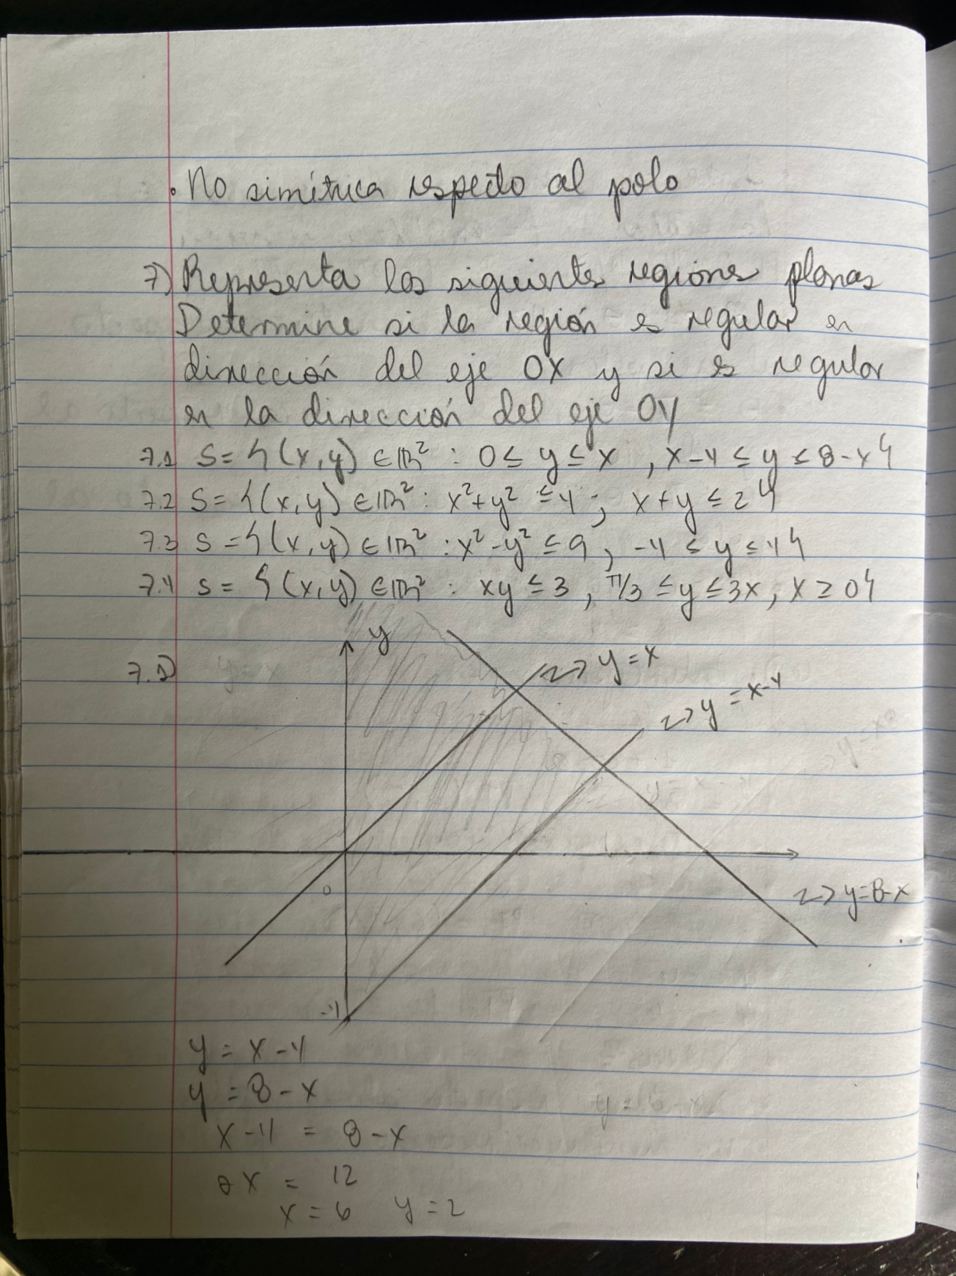 . No simétrica respecto al polo
7) Representa las siguientes regiones planas
Determine si la región es regular en
dirección del eje OX y si es regular
en la dirección del eje OY
7.1 S={(x,y) ∈ℝ² : 0≤ y ≤ x , x-4 ≤ y ≤ 8-x}
7.2 S={(x,y) ∈ℝ² : x²+y² ≤ 4 ; x+y ≤ 2}
7.3 S={(x,y) ∈ℝ² : x²-y² ≤ 9, -4 ≤ y ≤ 4}
7.4 S={(x,y) ∈ℝ² : xy ≤ 3, π/3 ≤ y ≤ 3x, x ≥ 0}
7.1)
y
y=x
y=x-4
0
y=8-x
-4
y = x-4
y = 8-x
x-4 = 8-x
2x = 12
x=6 y=2